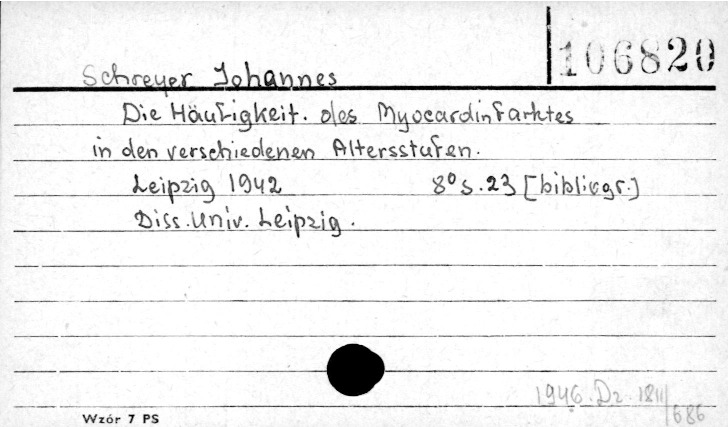 106820
Schreyer Johannes
Die Häufigkeit. des Myocardinfarktes
in den verschiedenen Altersstufen.
Leipzig 1942 8° s. 23 [bibliogr.]
Diss. Univ. Leipzig.
1946. Dz. 1811/686
Wzór 7 PS